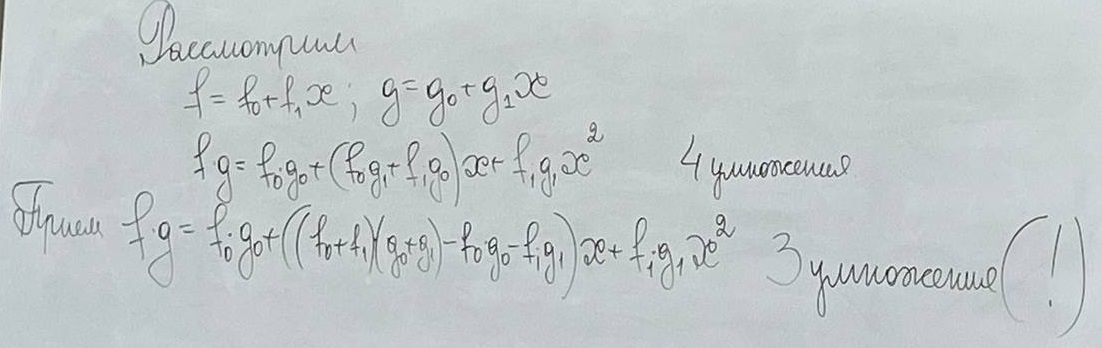 Рассмотрим
f = f₀ + f₁x ; g = g₀ + g₁x
f·g = f₀g₀ + (f₀g₁ + f₁g₀)x + f₁g₁x² 4 умножения
Прием f·g = f₀·g₀ + ((f₀+f₁)(g₀+g₁) - f₀·g₀ - f₁·g₁)x + f₁·g₁x² 3 умножение (!)